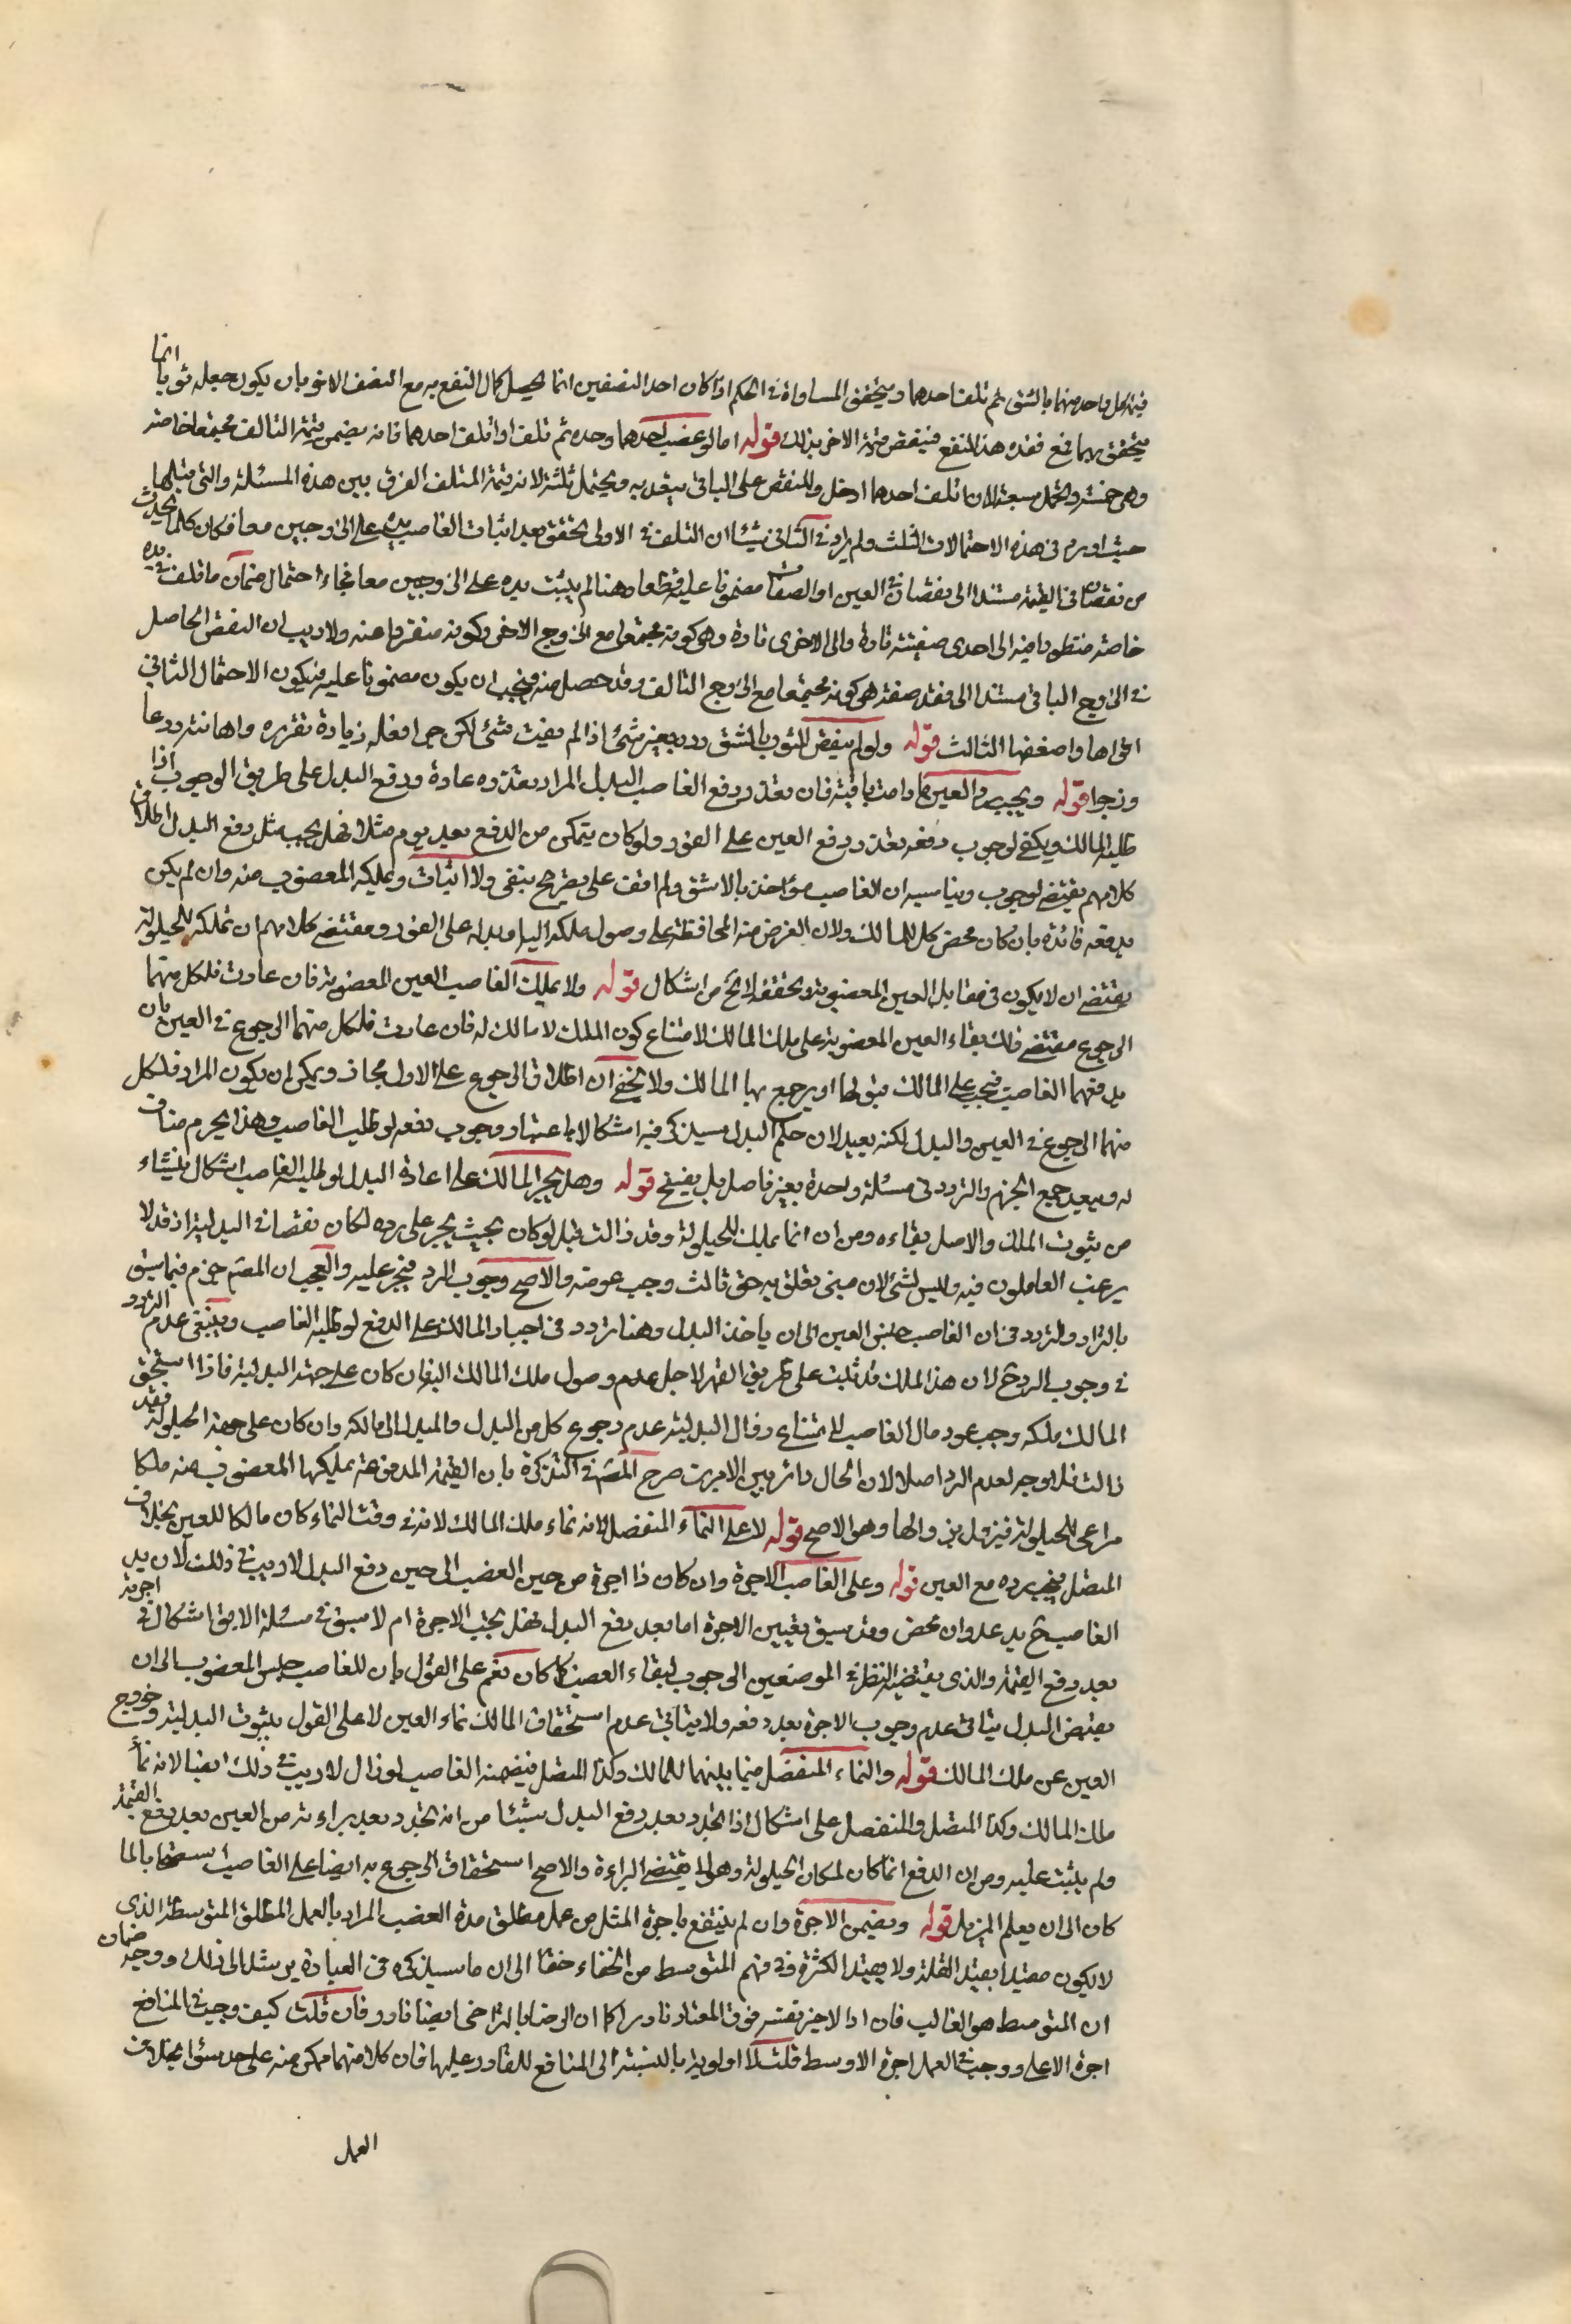 قيمة كل واحد منهما بالشق ثم تلف احدهما ويتحقق المساواة في الحكم اذا كان احد النصفين انما يحصل كمال النفع به مع النصف الاخر بان يكون جعله ثوبا انما
يتحقق بهما فمع فقده هذا النفع فينقص قيمة الاخر بذلك قوله اما لو غصب احدهما وحده ثم تلف او اتلف احدهما فانه يضمن قيمة التالف مجتمعا خاصة
وهي خمسة ويحتمل سبعة لان ما تلف احدهما ادخل النقص على الباقي بتعديه ويحتمل ثلثة لانه قيمة المتلف الفرق بين هذه المسئلة والتي قبلها
حيث اورد في هذه الاحتمالات الثلث ولم يزد في الثاني شيئا ان التلف في الاولى تحقق بعد اثبات الغاصب يده على الزوجين معا فكان كلما يحدث
من نقصان في القيمة مستندا الى نقصان في العين او الصفات مضمونا عليه قطعا وهنا لم يثبت يده على الزوجين معا فجاء احتمال ضمان ما تلف في يده
خاصة منظورا فيه الى احدى صفتيه تارة والى الاخرى تارة وهي كونه مجتمعا مع الزوج الاخر وكونه منفردا عنه ولا ريب ان النقص الحاصل
في الزوج الباقي مستندا الى فقد صفة هي كونه مجتمعا مع الزوج التالف وقد حصل منه فيجب ان يكون مضمونا عليه فيكون الاحتمال الثاني
اقواها واضعفها الثالث قوله ولو لم ينقص الثوب بالشق رده بغير شئ اذا لم يفت شئ لكن حرا فعله زيادة تعزيره واهانته ردعا
وزجرا قوله ويجب رد العين ما دامت باقية فان تعذر دفع الغاصب البدل المراد تعذره عادة ودفع البدل على طريق الوجوب اذا
طلبه المالك ويكفي لوجوب دفعه تعذر دفع العين على الفور ولو كان يتمكن من الدفع بعد يوم مثلا فهل يجب مثل دفع البدل اطلاق
كلامهم يقتضي لوجوب ويناسبه ان الغاصب مؤاخذ بالاشق ولم اقف على تصريح بنفي ولا اثبات ويملكه المغصوب منه وان لم يكن
بدفعه فائدة بان كان محض كل المالك ولان الغرض منه المحافظة على وصول ملكه اليه او بدله على الفور ومقتضى كلامهم ان تملكه للحيلولة
يقتضي ان لا يكون في مقابل العين المغصوبة وتحققه لا يخ من اشكال قوله ولا يملك الغاصب العين المغصوبة فان عادت فلكل منهما
الرجوع مقتضى ذلك بقاء العين المغصوبة على ملك المالك لامتناع كون الملك لا مالك له فان عادت فلكل منهما الرجوع في العين بان
يدفعهما الغاصب فيجب على المالك قبولها او يرجع بها المالك ولا يخفى ان اطلاق الرجوع على الاول مجاز ويمكن ان يكون المراد فلكل
منهما الرجوع في العين والبدل لكنه بعيد لان حكم البدل سيذكر فيه اشكالا باعتبار وجوب دفعه لو طلب الغاصب وهذا يحرم مناف
له ويبعد جمع الجزم والتردد في مسئلة واحدة بغير فاصل بل يقبح قوله وهل يجبر المالك على اعادة البدل لو طلبه الغاصب اشكال ينشاء
من ثبوت الملك والاصل بقاءه ومن ان انما يملك للحيلولة وقد زالت قبل لو كان بحيث يجبر على رده لكان نقصا في البدلية اذ قد لا
يرغب العاملون فيه وليس لشئ لان مبنى تعلق به حق ثالث وجب عوضه والاصح وجوب الرد فيجبر عليه والعجب ان المصنف جزم فيما سبق
بالتراد والتردد في ان الغاصب حبس العين الى ان ياخذ البدل وهنا تردد في اجبار المالك على الدفع لو طلبه الغاصب وينبغي عدم التردد
في وجوب الرد ح لان هذا الملك قد ثبت على طريق القهر لاجل عدم وصول ملك المالك اليه فان كان على جهة البدلية فاذا استحق
المالك ملكه وجب عود مال الغاصب لامتناع زوال البدلية عدم رجوع كل من البدل والمبدل الى مالكه وان كان على جهة الحيلولة فقد
زالت فلا وجه لعدم الرد اصلا لان الحال دائر بين الامرين صرح المصنف في التذكرة بان القيمة المدفوعة يملكها المغصوب منه ملكا
مراعى للحيلولة فيزول بزوالها وهو الاصح قوله لا على النماء المنفصل لانه نماء ملك المالك لانه في وقت النماء كان مالكا للعين بخلاف
المتصل فيجب رده مع العين قوله وعلى الغاصب الاجرة وان كان ذا اجرة من حين الغصب الى حين دفع البدل لا ريب في ذلك لان يد
الغاصب ح يد عدوان محض وقد سبق تعيين الاجرة اما بعد دفع البدل فهل يجب الاجرة ام لا سبق في مسئلة الابق اشكال في اجرته
بعد دفع القيمة والذي يقتضيه النظر في الموضعين الوجوب لبقاء الغصب كما كان نعم على القول بان للغاصب حبس المغصوب الى ان
يقبض البدل يتاتى عدم وجوب الاجرة بعد دفعه ولا يتاتى عدم استحقاق المالك نماء العين لا على القول بثبوت البدلية وخروج
العين عن ملك المالك قوله والنماء المنفصل فيما بينهما للمالك وكذا المتصل فيضمنه الغاصب لو زال لا ريب في ذلك ايضا لانه نماء
ملك المالك وكذا المتصل والمنفصل على اشكال اذا تجدد بعد دفع البدل ينشا من انه تجدد بعد براءته من العين بعد دفع القيمة
ولم يثبت عليه ومن ان الدفع انما كان لمكان الحيلولة وهو لا يقتضي البراءة والاصح استحقاق الرجوع به ايضا على الغاصب استصحابا لما
كان الى ان يعلم المزيل قوله ويضمن الاجرة وان لم ينتفع باجرة المثل من عمل مطلق مدة الغصب المراد بالعمل المطلق المتوسط الذي
لا يكون مقيدا بقيد القلة ولا بقيد الكثرة وفي فهم المتوسط من الخفاء خفاء الى ان ما سيذكره في العبارة يرشد الى ذلك ووجه ضمان
ان المتوسط هو الغالب فان اد الاجير نفسه فوق المعتاد نادر كما ان الرضا بالتراخي ايضا نادر فان قلت كيف وجبت في المنافع
اجرة الاعلى ووجبت في العمل اجرة الاوسط قلت لا اولوية بالنسبة الى المنافع للقادر عليها فان كلا منهما ممكن منه على حد سواء بخلاف
العمل